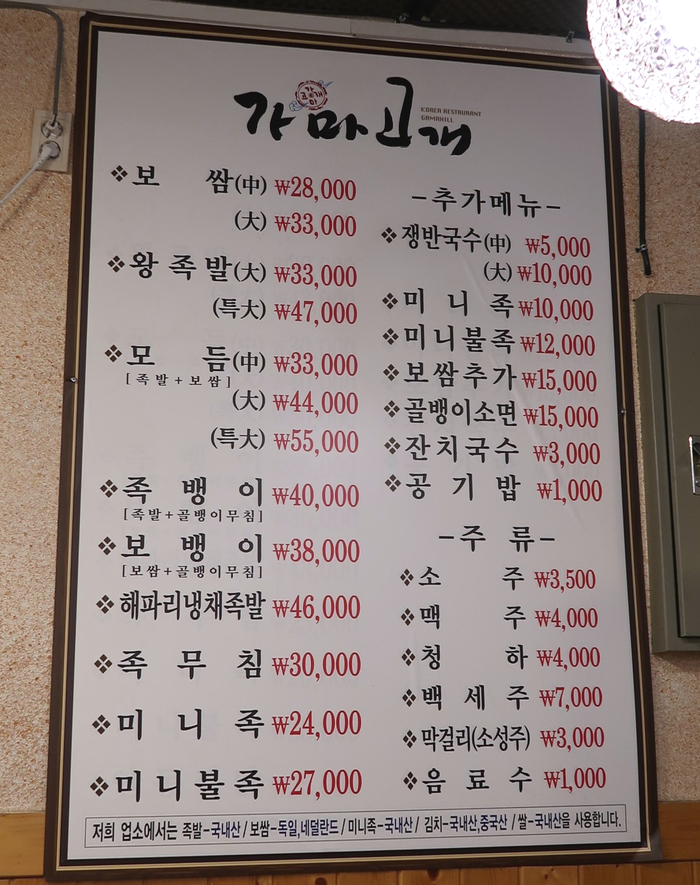 가마고개
KOREA RESTAURANT
GAMAHILL
❖보 쌈(中) ₩28,000
(大) ₩33,000
❖왕족발(大) ₩33,000
(특大) ₩47,000
❖모 듬(中) ₩33,000
[족발+보쌈]
(大) ₩44,000
(특大) ₩55,000
❖족 뱅 이 ₩40,000
[족발+골뱅이무침]
❖보 뱅 이 ₩38,000
[보쌈+골뱅이무침]
❖해파리냉채족발 ₩46,000
❖족 무 침 ₩30,000
❖미 니 족 ₩24,000
❖미니불족 ₩27,000
-추가메뉴-
❖쟁반국수(中) ₩5,000
(大) ₩10,000
❖미 니 족 ₩10,000
❖미니불족 ₩12,000
❖보쌈추가 ₩15,000
❖골뱅이소면 ₩15,000
❖잔치국수 ₩3,000
❖공 기 밥 ₩1,000
-주 류-
❖소 주 ₩3,500
❖맥 주 ₩4,000
❖청 하 ₩4,000
❖백 세 주 ₩7,000
❖막걸리(소성주) ₩3,000
❖음 료 수 ₩1,000
저희 업소에서는 족발-국내산 / 보쌈-독일,네덜란드 / 미니족-국내산 / 김치-국내산,중국산 / 쌀-국내산을 사용합니다.